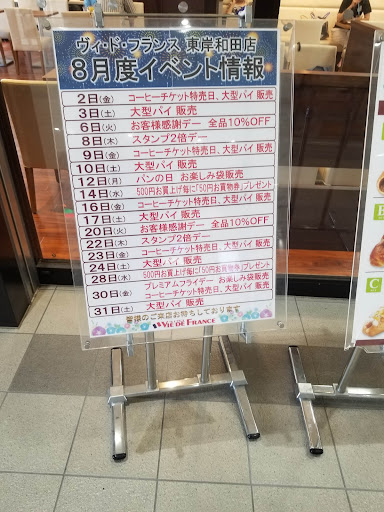 ヴィ・ド・フランス 東岸和田店
8月度イベント情報
2日(金) コーヒーチケット特売日、大型パイ 販売
3日(土) 大型パイ 販売
6日(火) お客様感謝デー 全品10%OFF
8日(木) スタンプ2倍デー
9日(金) コーヒーチケット特売日、大型パイ 販売
10日(土) 大型パイ 販売
12日(月) パンの日 お楽しみ袋販売
14日(水) 500円お買上げ毎に「50円お買物券」プレゼント
16日(金) コーヒーチケット特売日、大型パイ 販売
17日(土) 大型パイ 販売
20日(火) お客様感謝デー 全品10%OFF
22日(木) スタンプ2倍デー
23日(金) コーヒーチケット特売日、大型パイ 販売
24日(土) 大型パイ 販売
28日(水) 500円お買上げ毎に「50円お買物券」プレゼント
30日(金) プレミアムフライデー お楽しみ袋販売
コーヒーチケット特売日、大型パイ 販売
31日(土) 大型パイ 販売
皆様のご来店お待ちしております
VIE DE FRANCE
C